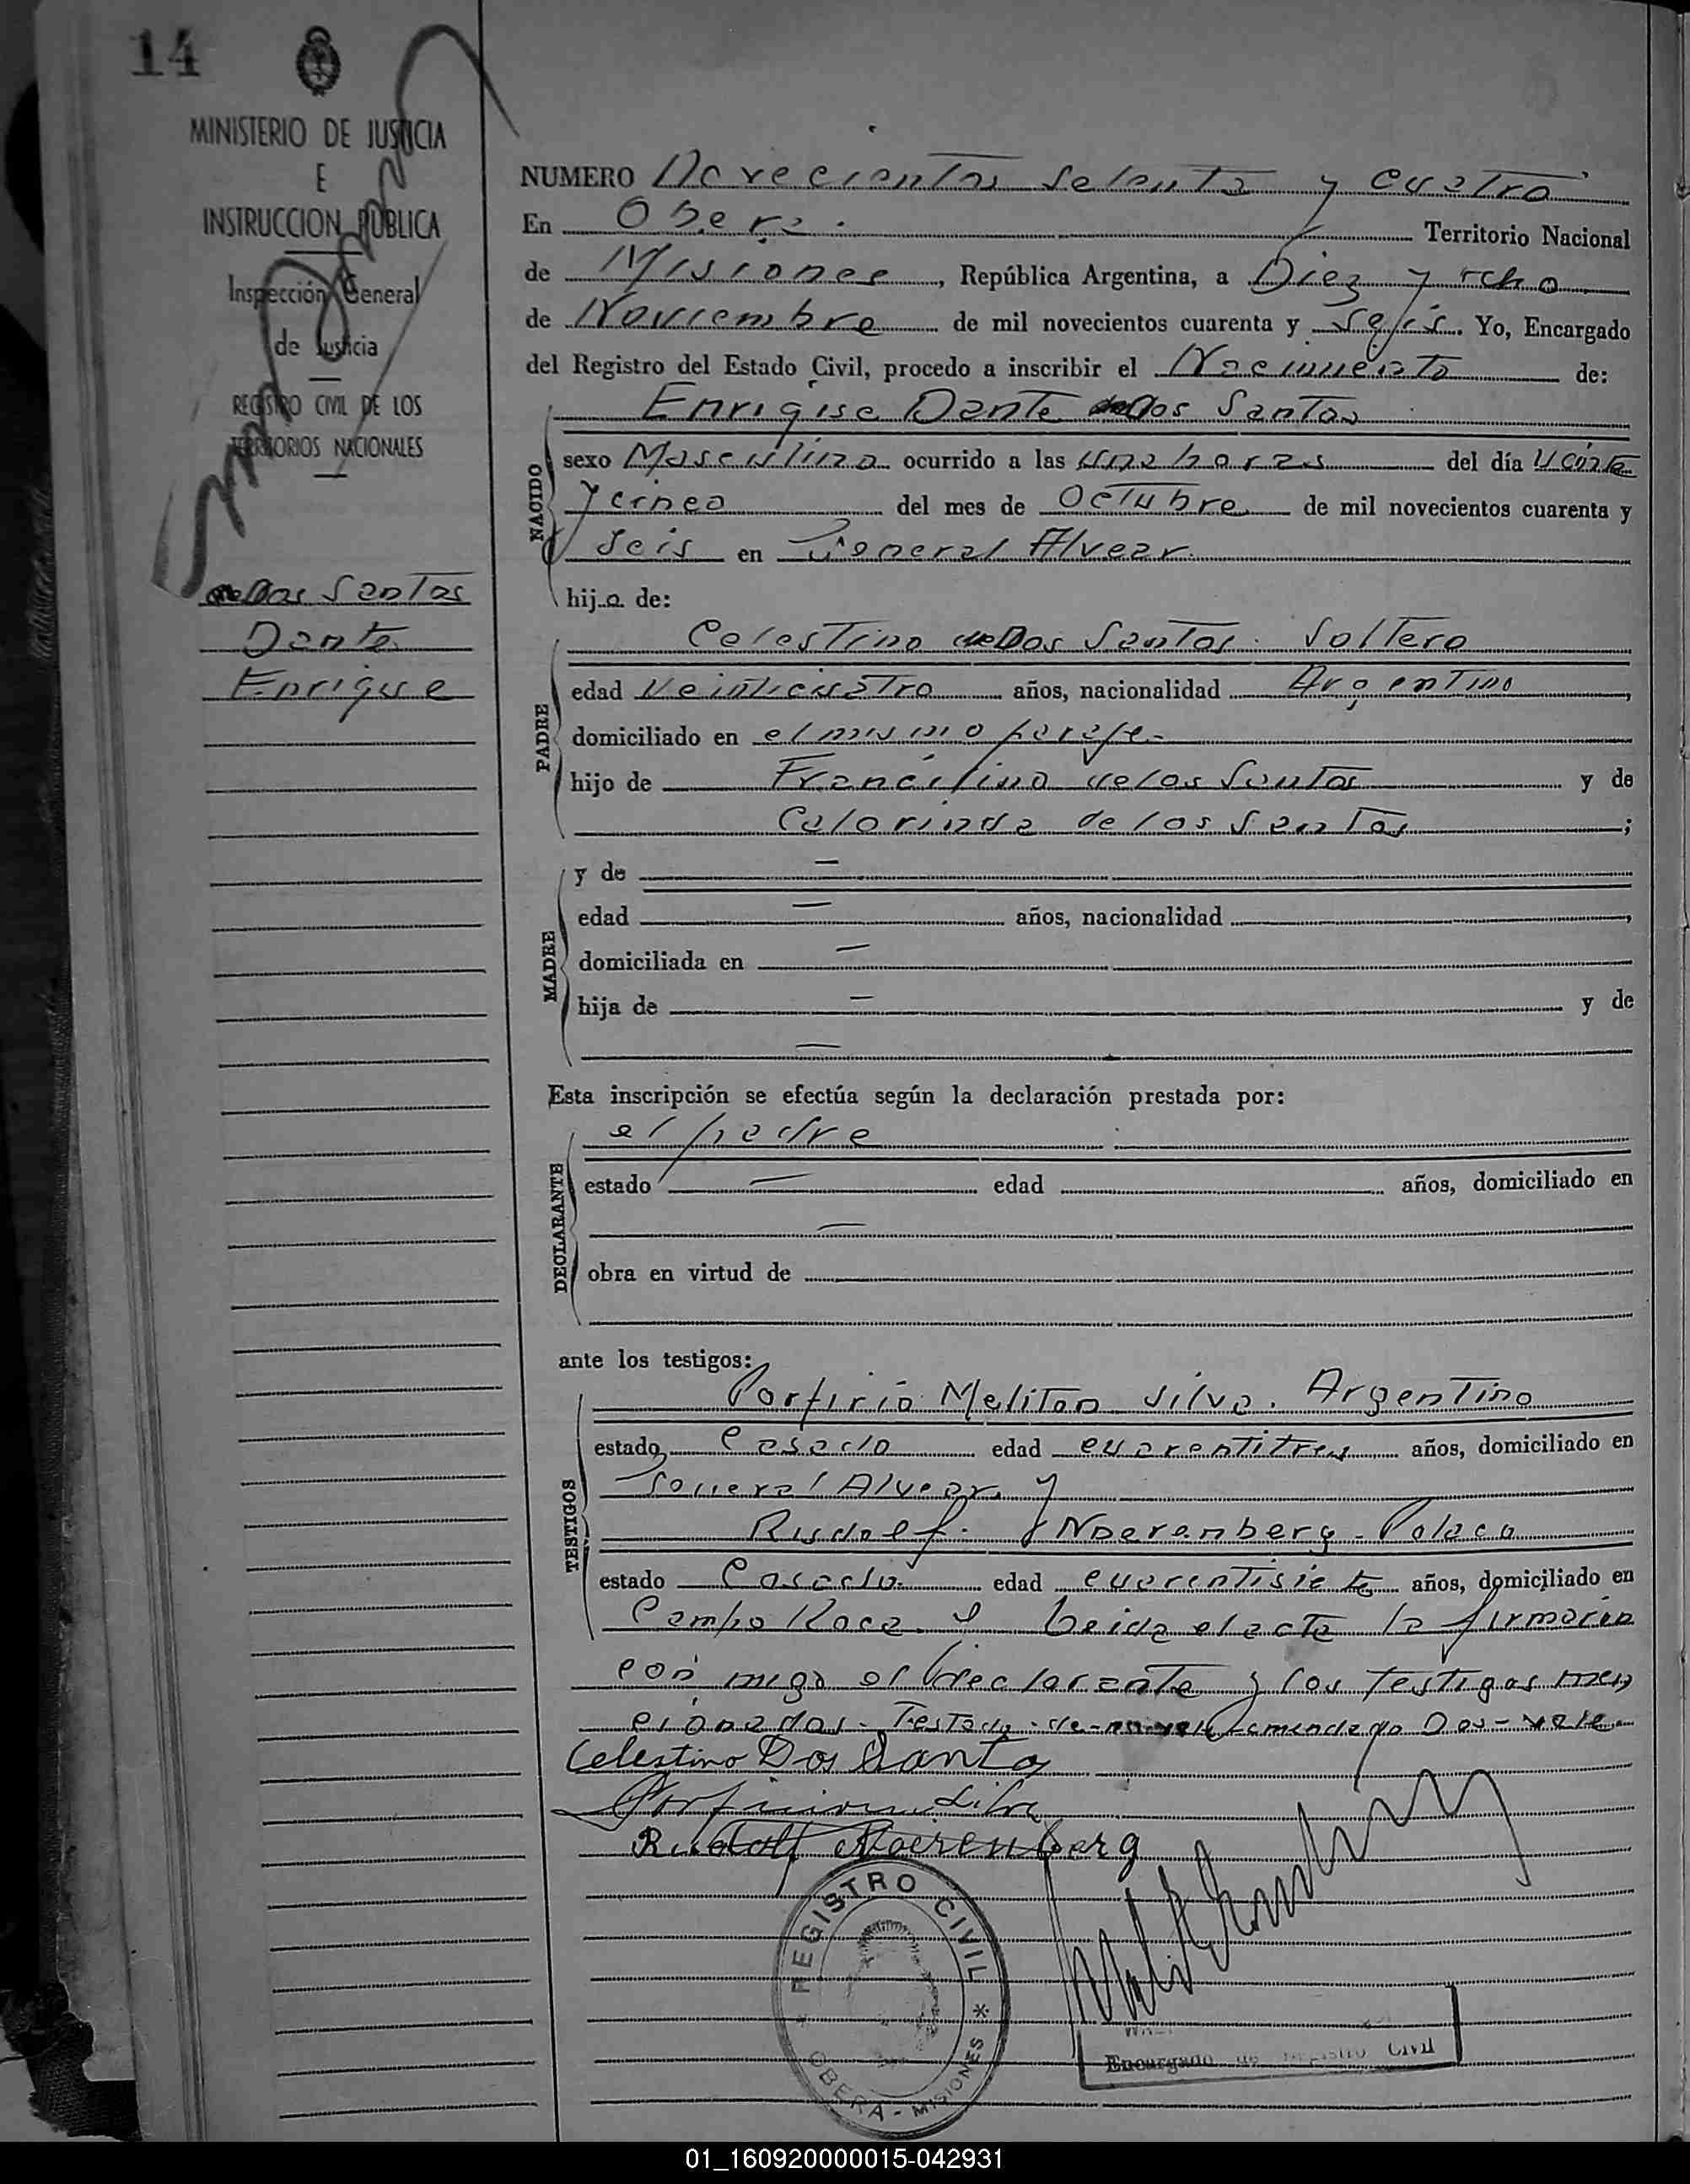 14
MINISTERIO DE JUSTICIA
E
INSTRUCCION PUBLICA
Inspección General
de Justicia
REGISTRO CIVIL DE LOS
TERRITORIOS NACIONALES
Dos Santos
Dante
Enrique
NUMERO Novecientos setenta y cuatro
En Obera. Territorio Nacional
de Misiones, República Argentina, a Diez y ocho
de Noviembre de mil novecientos cuarenta y seis. Yo, Encargado
del Registro del Estado Civil, procedo a inscribir el Nacimiento de:
Enrique Dante Dos Santos
NACIDO
sexo Masculino ocurrido a las una horas del día veinte
y cinco del mes de Octubre de mil novecientos cuarenta y
seis en General Alvear.
hijo de:
PADRE
Celestino Dos Santos. Soltero
edad Veinticuatro años, nacionalidad Argentino,
domiciliado en el mismo paraje.
hijo de Francilino de los Santos y de
Calorinda de los Santos;
MADRE
y de —
edad — años, nacionalidad,
domiciliada en —
hija de — y de
—
Esta inscripción se efectúa según la declaración prestada por:
DECLARANTE
el padre
estado — edad años, domiciliado en
—
obra en virtud de
ante los testigos:
TESTIGOS
Porfirio Meliton Silva. Argentino
estado Casado edad cuarentitres años, domiciliado en
General Alvear. y
Rudolf Noerenberg. Polaco
estado Casado. edad cuarentisiete años, domiciliado en
Campo Roca. Leida el acta la firmaron
con migo el declarante y los testigos men
cionados. Testado. de no vale Enmendado Dos - vale.
Celestino Dos Santos
Silva
Rudolf Noerenberg
REGISTRO CIVIL
OBERA - MISIONES
Encargado de Registro Civil
01_160920000015-042931